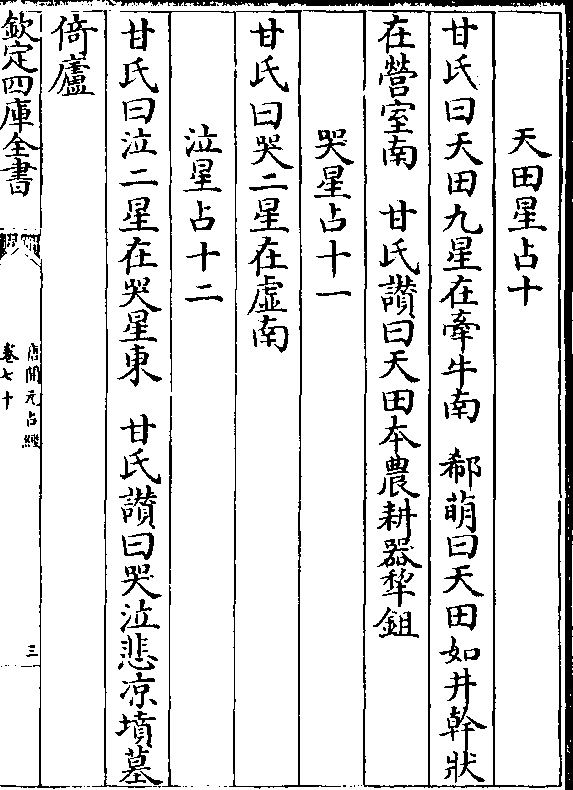 天田星占十
甘氏曰天田九星在牽牛南　郗萌曰天田如井幹狀
在營室南　甘氏讃曰天田本農耕器犂鉏
哭星占十一
甘氏曰哭二星在虛南
泣星占十二
甘氏曰泣二星在哭星東　甘氏讃曰哭泣悲凉墳墓
倚廬
欽定四庫全書
唐開元占經
卷七十
三